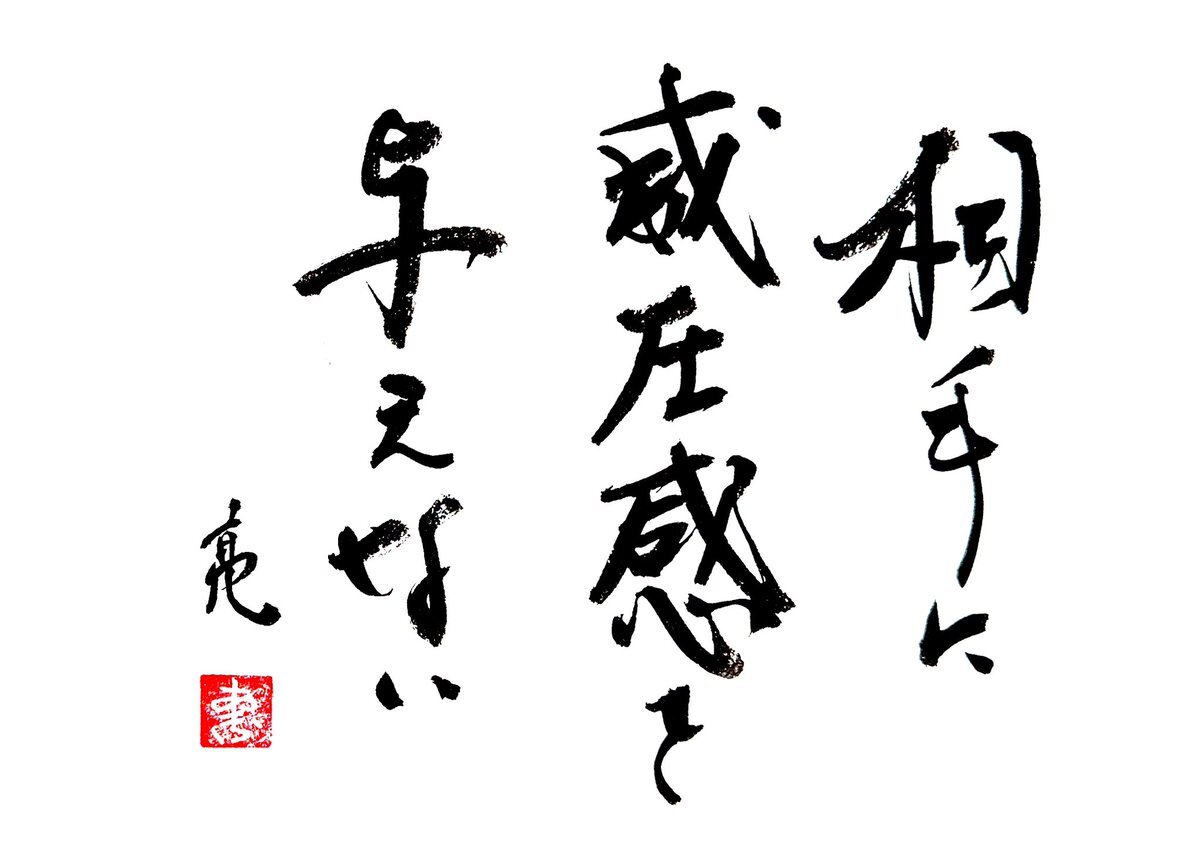 相手に
威圧感を
与えない
亮